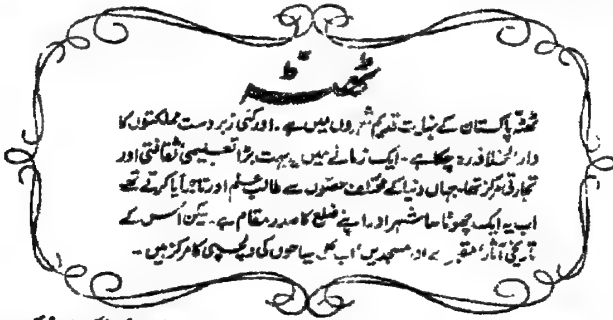 ٹھٹہ
ٹھٹہ پاکستان کے نہایت قدیم شہروں میں ہے۔ اور کئی زبردست مملکتوں کا
دارالخلافہ رہ چکا ہے۔ ایک زمانے میں یہ بہت بڑا تعلیمی ثقافتی اور
تجارتی مرکز تھا، جہاں دنیا کے مختلف حصّوں سے طالب علم اور تاجر آیا کرتے تھے
اب یہ ایک چھوٹا سا شہر اور اپنے ضلع کا صدر مقام ہے۔ لیکن اُس کے
تاریخی آثار، مقبرے اور مسجدیں اب بھی سیاحوں کی دلچسپی کا مرکز ہیں۔